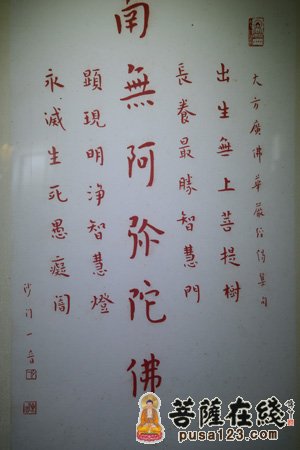 大方廣佛華嚴經偈集句
出生無上菩提樹
長養最勝智慧門
南無阿弥陀佛
顯現明淨智慧燈
永滅生死愚癡闇
沙門一音
菩薩在綫
pusa123.com